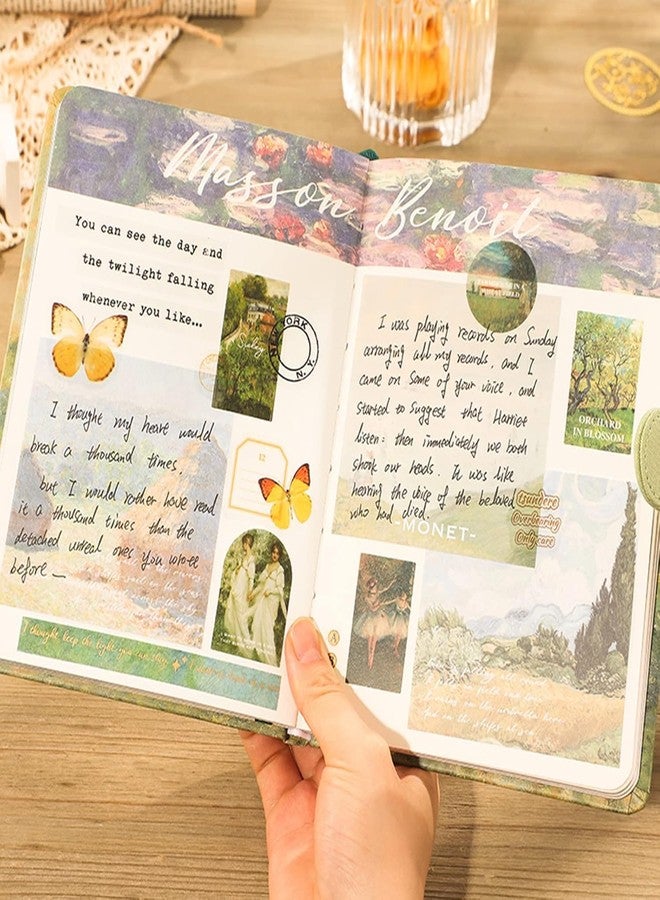 Masson Benoit
You can see the day and
the twilight falling
whenever you like...
NEW YORK
N. Y.
I thought my heart would
break a thousand times.
but I would rather have read
it a thousand times than the
detached unreal ones you wrote
before —
12
I was playing records on Sunday
arranging all my records, and I
came on some of your voice, and
started to suggest that Harriet
listen: then immediately we both
shook our heads. It was like
hearing the voice of the beloved
who had died.
-MONET-
ORCHARD
IN BLOSSOM
Tsundere
Overbearing
Only care
A